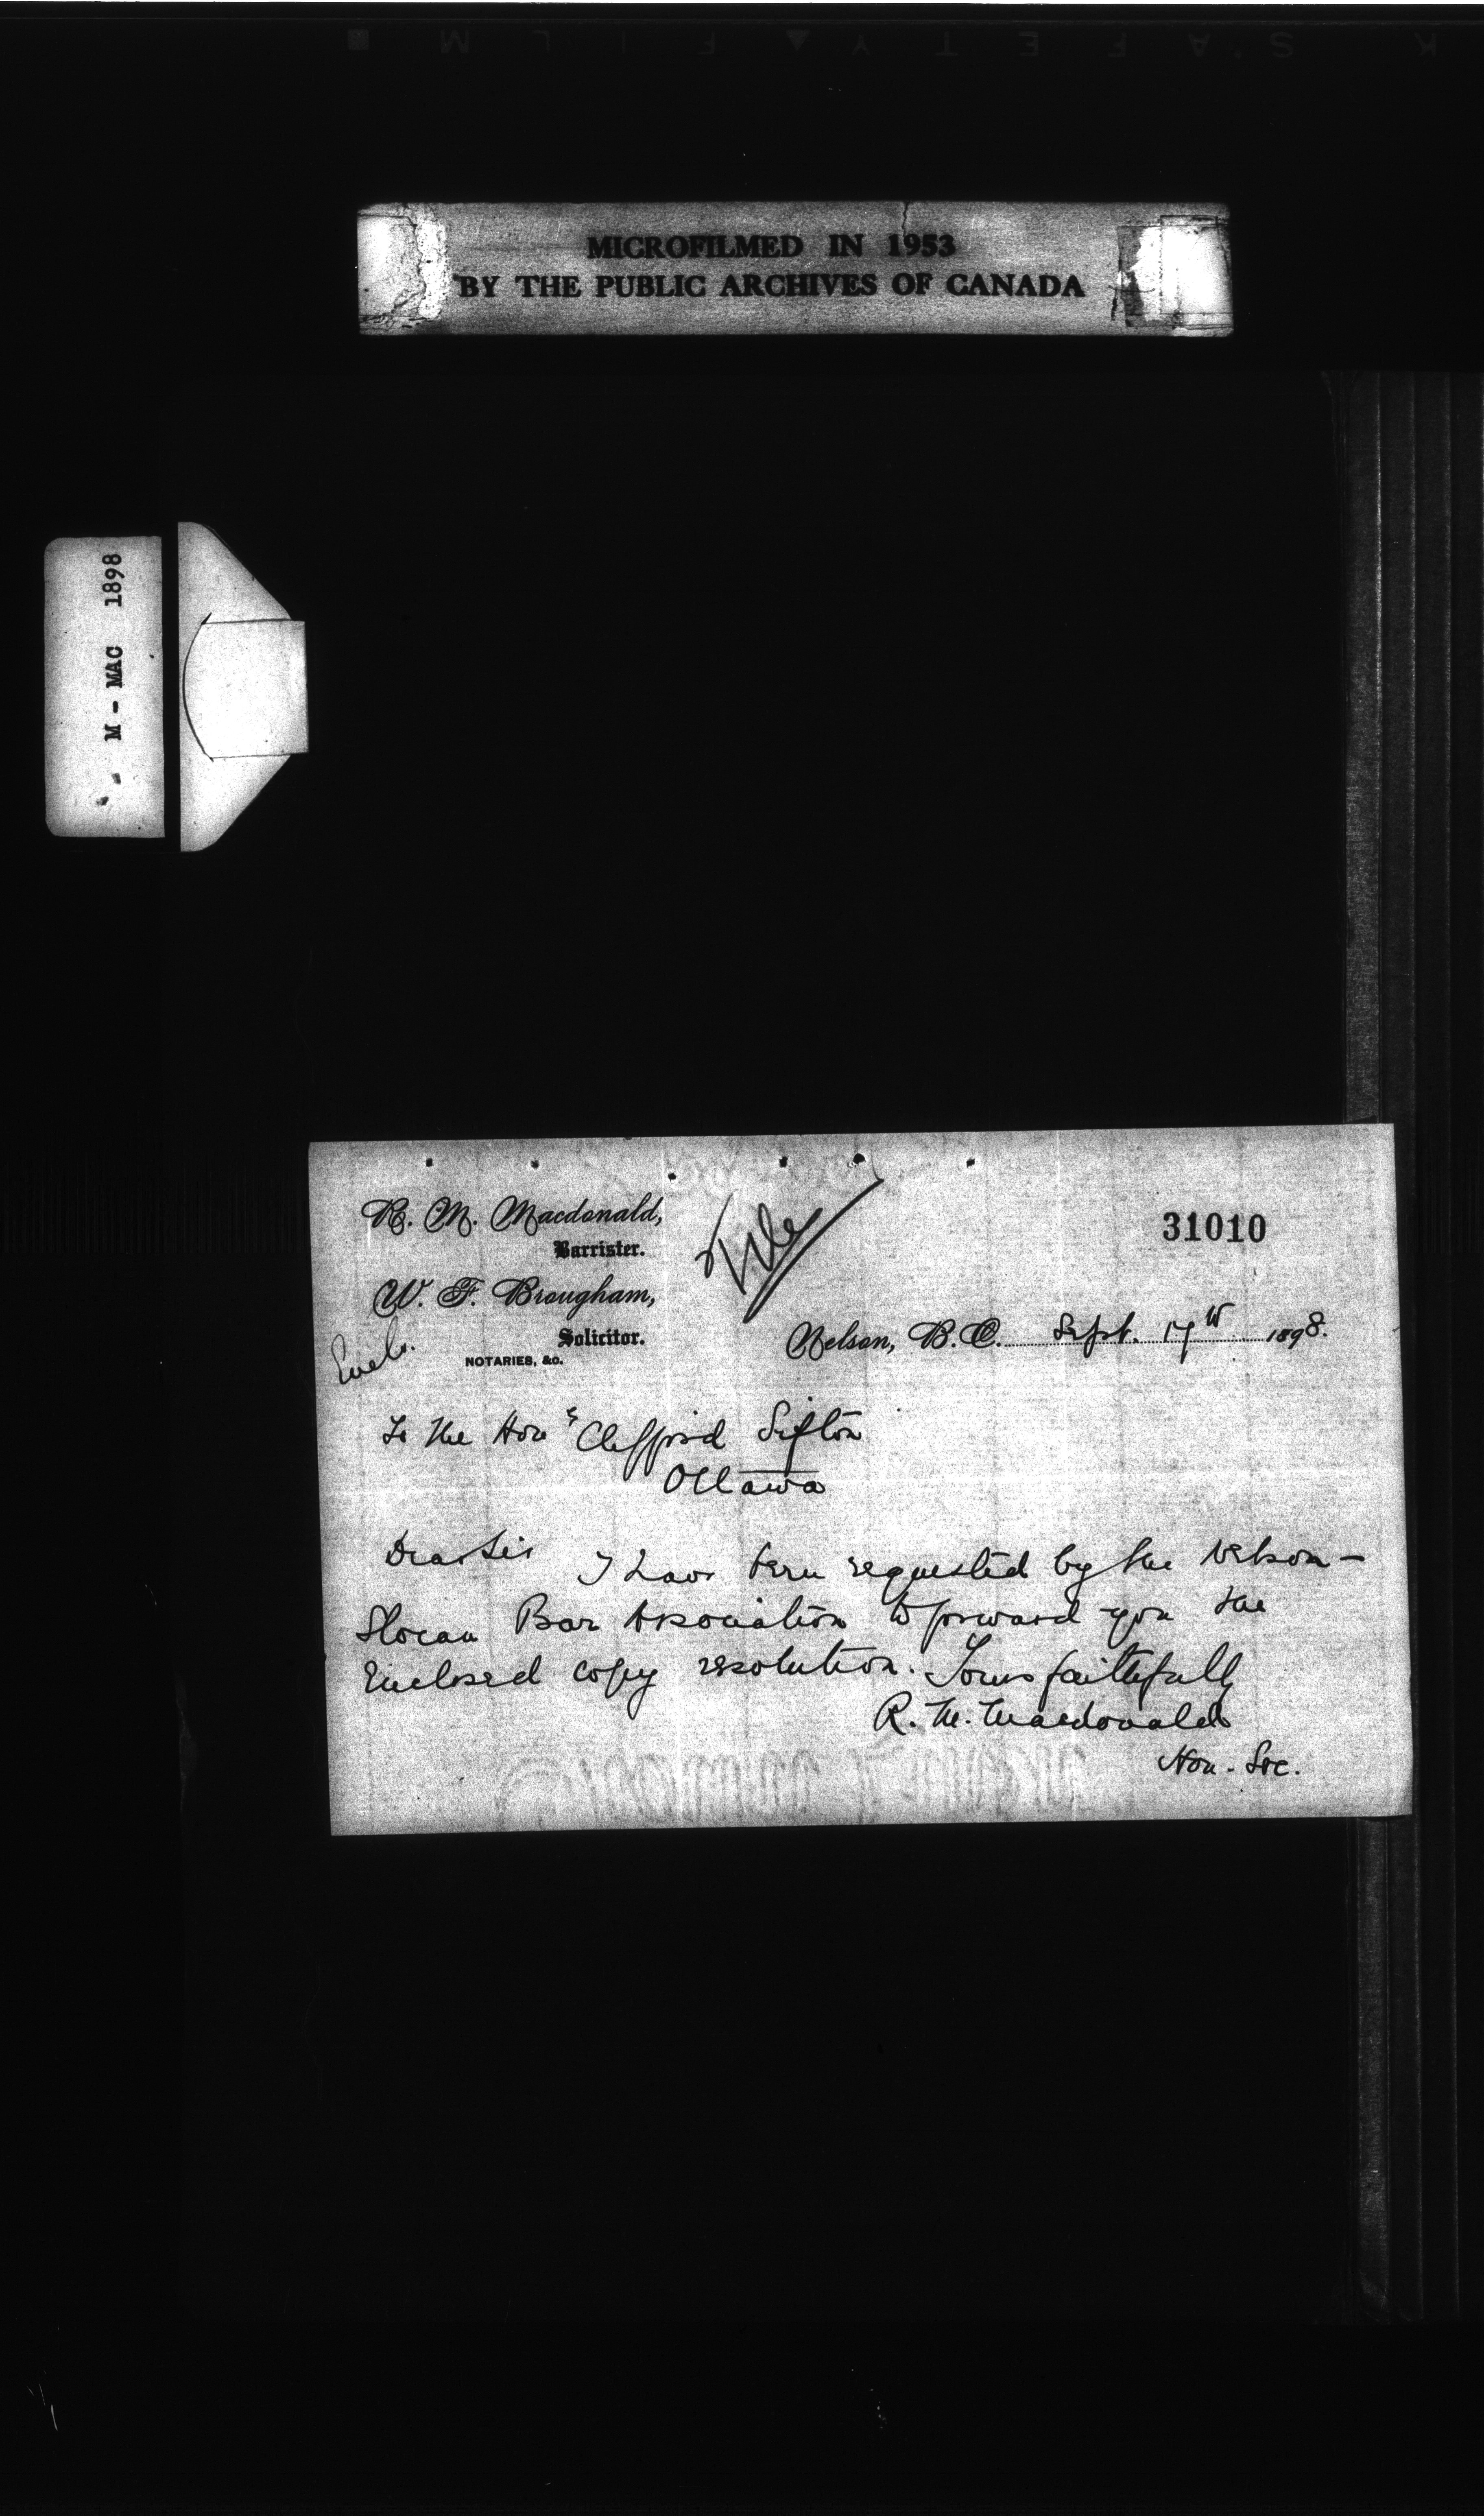 K S'AFETY ▲ FILM ■
MICROFILMED IN 1953
BY THE PUBLIC ARCHIVES OF CANADA
M - MAC 1898
R. M. Macdonald,
Barrister.
File
31010
W. F. Brougham,
Solicitor.
Encls.
NOTARIES, &c.
Nelson, B. C. Sept. 17th 1898.
To the Hon Clifford Sifton
Ottawa
Dear Sir I have been requested by the Nelson -
Slocan Bar Association to forward you the
Enclosed copy resolution. Yours faithfully
R. M. Macdonald
Hon. Sec.